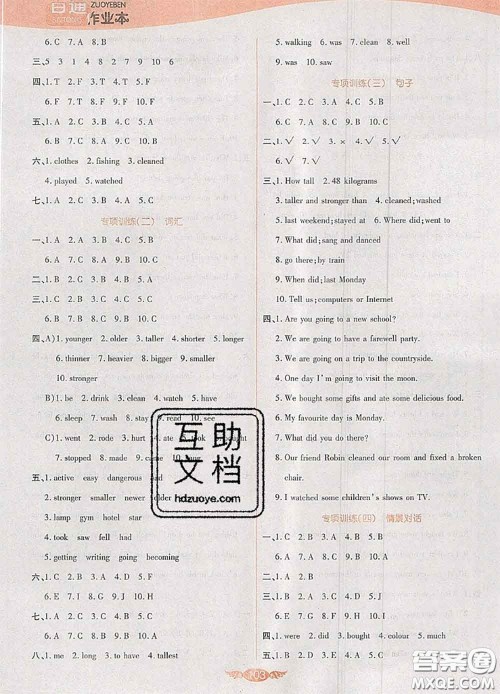 百通
ZUOYEBEN
作业本
6. C 7. A 8. B
三、5 3 1 4 8 2 7 9 10 6
四、1. T 2. F 3. F 4. T 5. T
6. F 7. T 8. F 9. F 10. T
五、1. A 2. B 3. C 4. A 5. C
6. B 7. C 8. C 9. B 10. C
六、1. clothes 2. fishing 3. cleaned
4. played 5. watched
七、1. C 2. A 3. B 4. C 5. A
专项训练(二) 词汇
一、1. A 2. C 3. B 4. C 5. A
6. B 7. A 8. B 9. C 10. C
二、1. B 2. B 3. C 4. A 5. A
6. B 7. A 8. B 9. A
三、1. B 2. C 3. C 4. A 5. B
6. A 7. C 8. B 9. C 10. A
四、A)1. younger 2. older 3. taller 4. shorter 5. longer
6. thinner 7. heavier 8. bigger 9. smaller
10. stronger
B)1. be 2. drink 3. clean 4. watch 5. have
6. sleep 7. wash 8. read 9. stay 10. see
C)1. went 2. rode 3. hurt 4. ate 5. took
6. stopped 7. made 8. came 9.
五、1. active easy dangerous bad
2. stronger smaller older
3. lamp gym hotel star
4. took saw fell had
5. getting writing becoming
六、1. C 2. D 3. A 4. H 5. B
6. E 7. J 8. I 9. G 10. F
七、1. C 2. A 3. C 4. A 5. C
6. B 7. A 8. B 9. C 10. A
八、1. me 2. long 3. to have 4. tallest
5. walking 6. was 7. clean 8. well
9. was 10. saw
专项训练(三) 句子
一、1. C 2. C 3. A 4. C 5. B
二、1. √ 2. √ 3. × 4. √ 5. √
6. √ 7. √ 8. √
三、1. How tall 2. 48 kilograms
3. taller and stronger than 4. cleaned;washed
5. last weekend;stayed at 6. Where did;went to
7. What did;sang and danced
8. go there;by train
9. When did;last Monday
10. Tell us;computers or Internet
四、1. Are you going to a new school?
2. We are going to have a farewell party.
3. We are going on a trip to the countryside.
4. One day I'm going to visit the moon.
5. We bought some gifts and ate some delicious food.
6. My favourite day is Monday.
8. Our friend Robin cleaned our room and fixed a broken
chair.
9. I watched some children's shows on TV.
专项训练(四) 情景对话
一、1. C 2. B 3. A 4. C 5. C
6. B 7. A 8. C 9. C 10. B
二、1. D 2. A 3. E 4. B 5. C
6. E 7. G 8. F 9. H
三、1. D 2. F 3. A 4. G 5. B
6. E 7. C
四、1. were 2. did 3. bought 4. colour 5. much
6. did 7. by 8. What 9. had 10. to
五、1. C 2. B 3. A 4. B 5. A
103
互助
文档
hdzuoye.com
答案圈
MXQE.COM